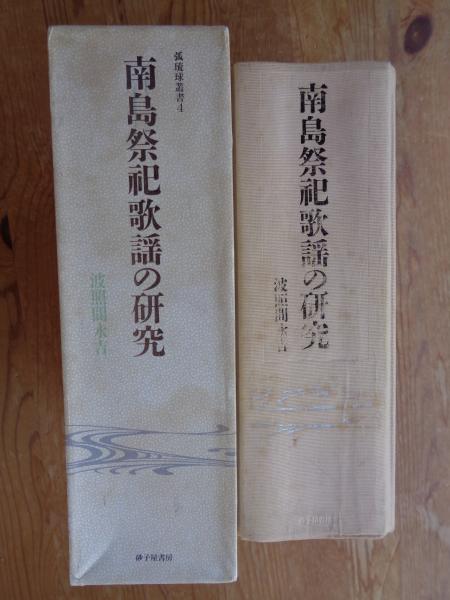 弧琉球叢書4
南島祭祀歌謡の研究
波照間永吉
砂子屋書房
南島祭祀歌謡の研究
波照間永吉
砂子屋書房